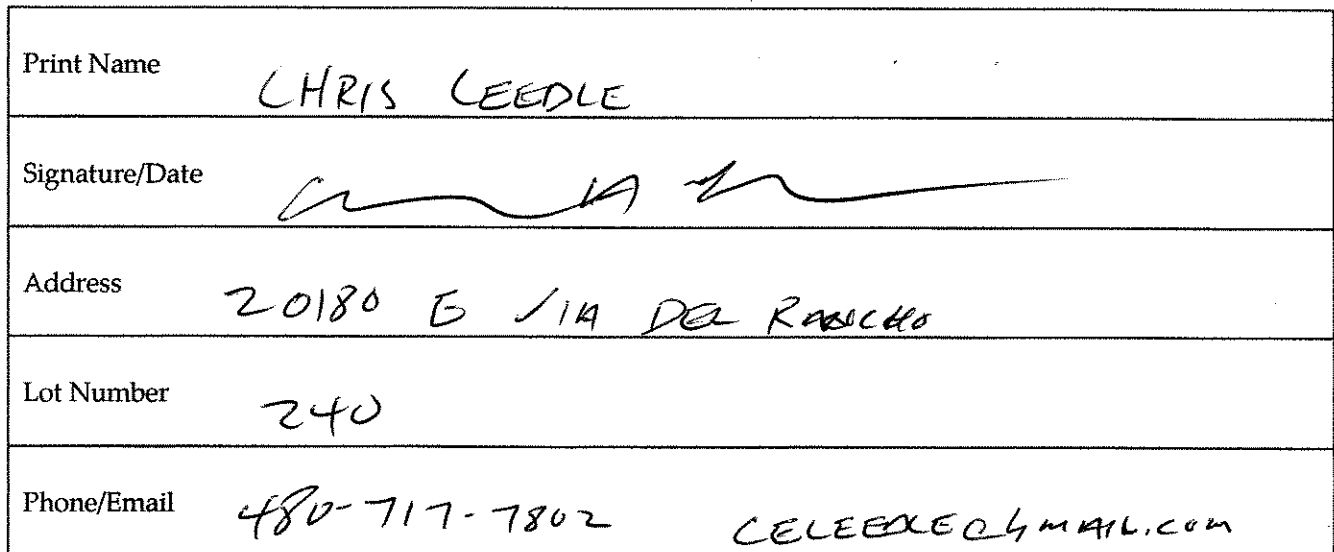 Print Name CHRIS LEEDLE
Signature/Date
Address 20180 E VIA DEL RANCHO
Lot Number 240
Phone/Email 480-717-7802 CELEEDLE@GMAIL.COM